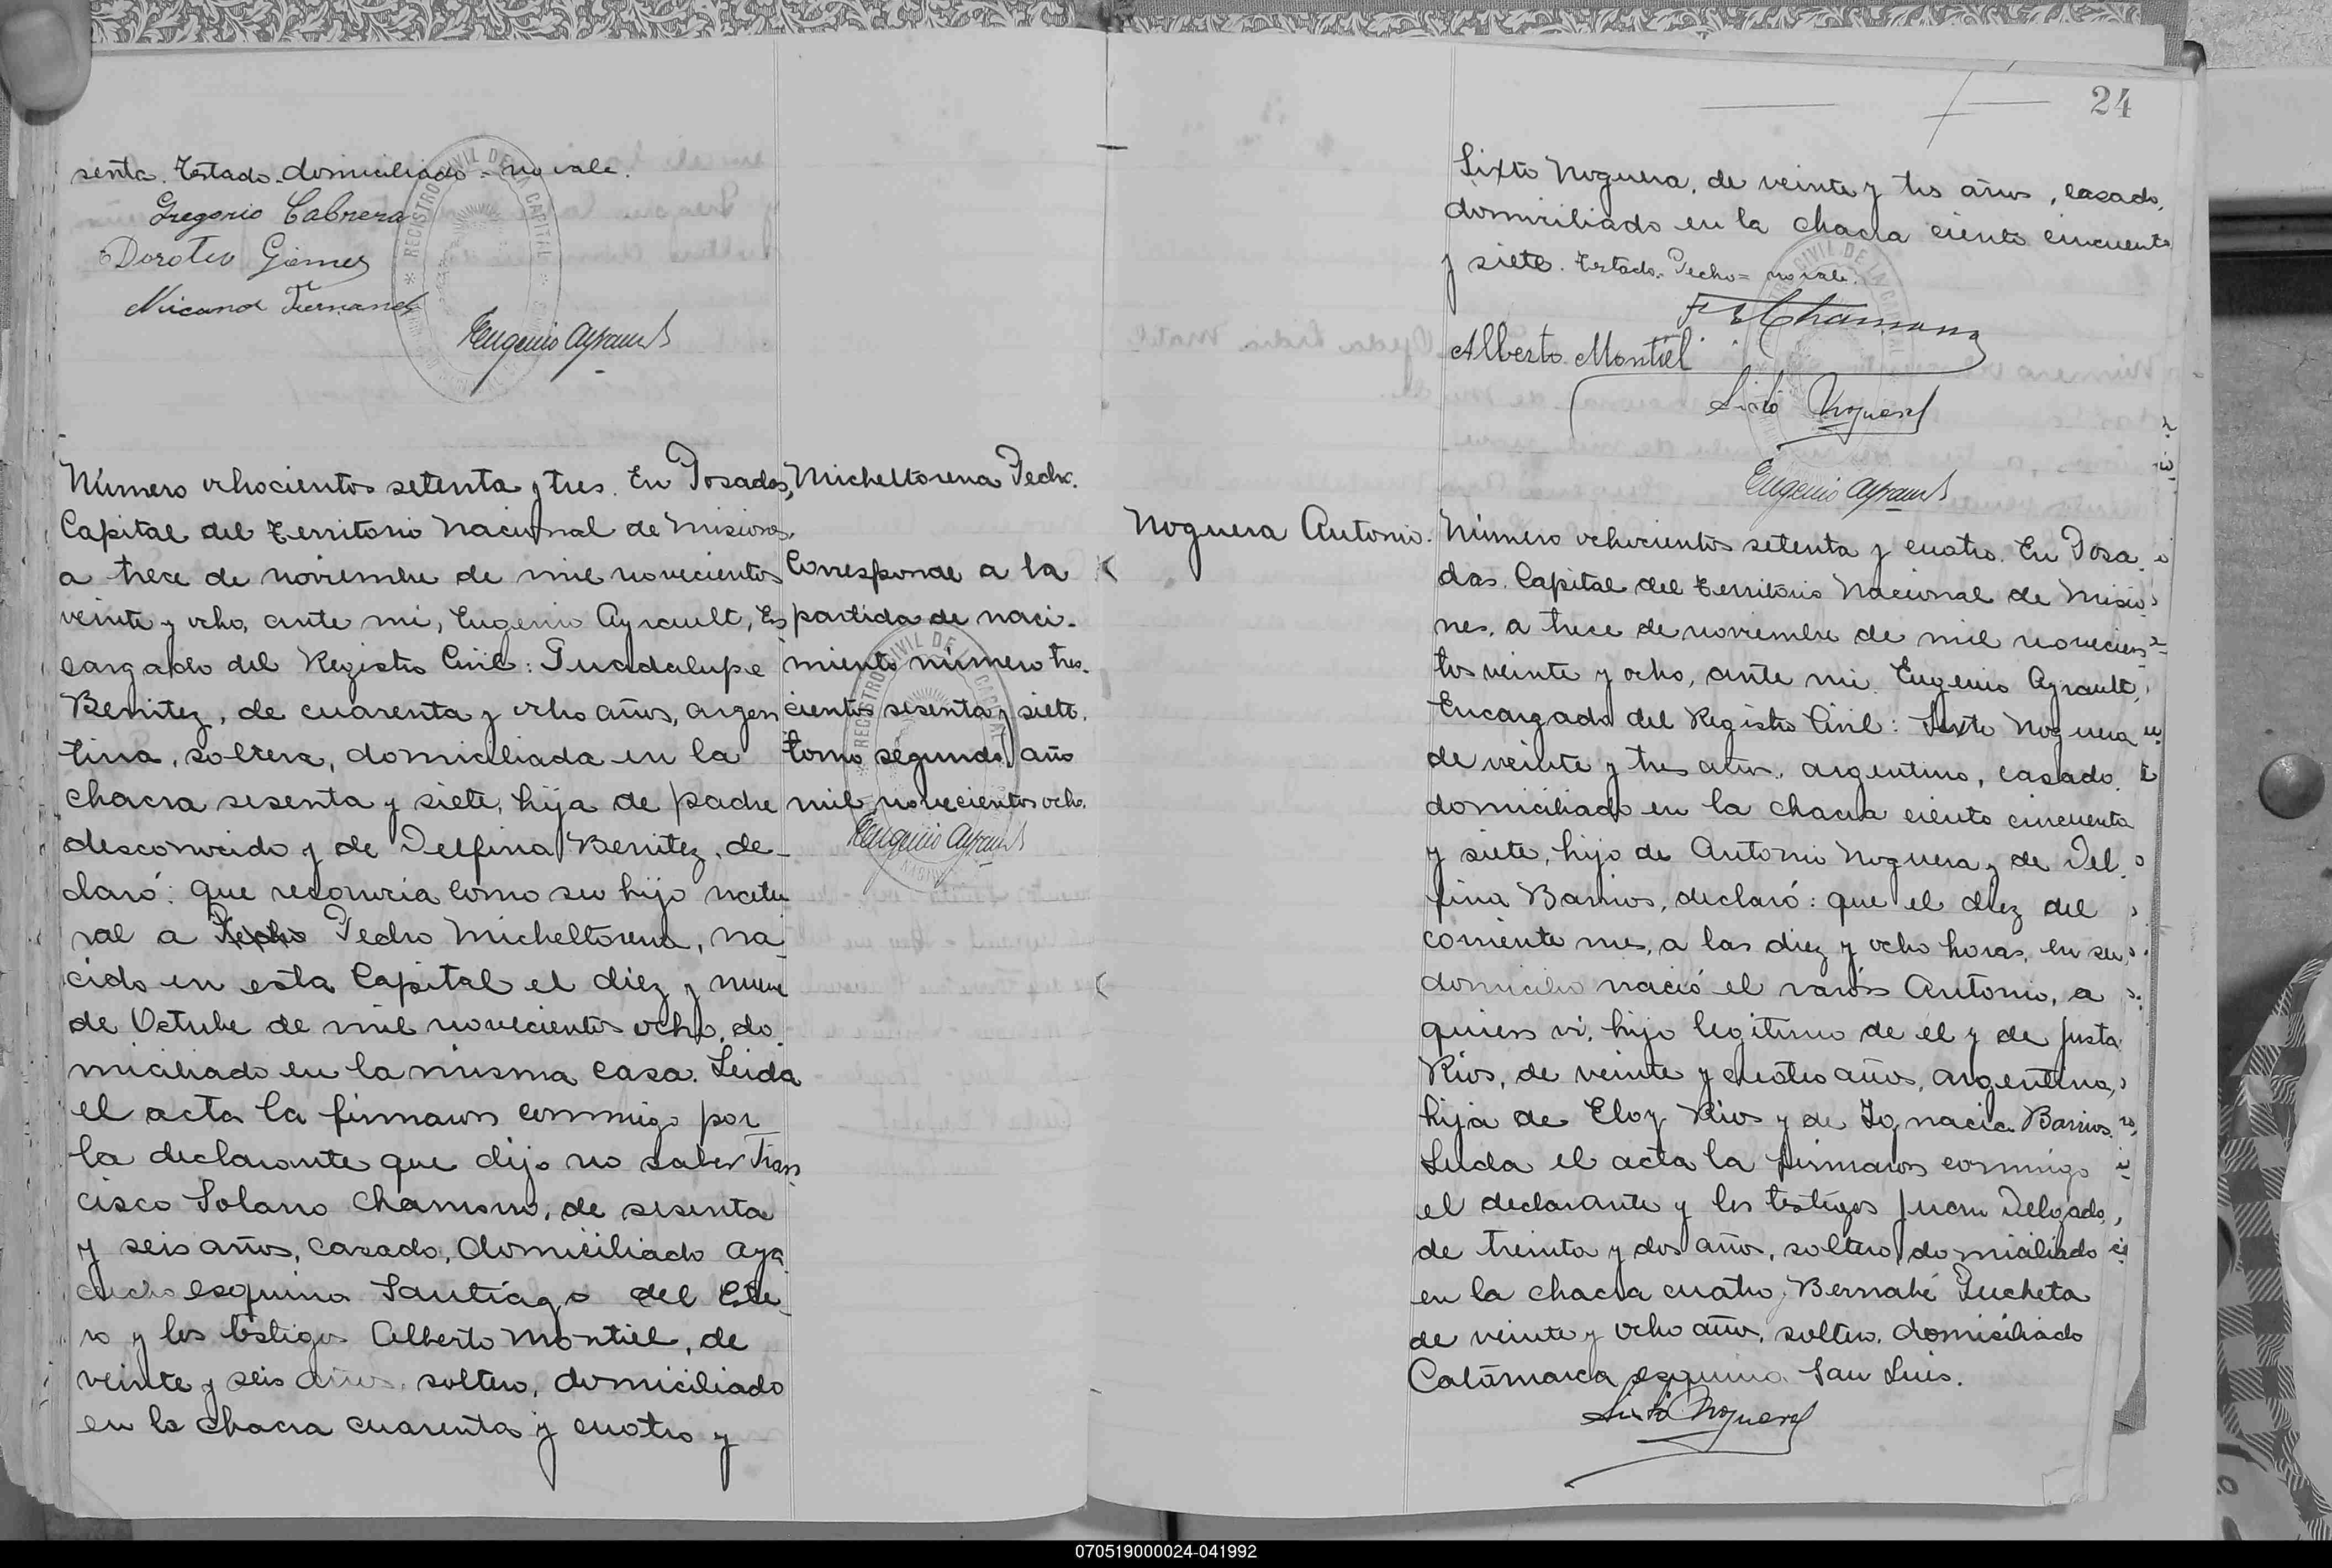 senta. Testado. domiciliado = no vale.
Gregorio Cabrera
Doroteo Gomez
Nicanor Fernandez
Eugenio Ayrault
REGISTRO CIVIL DE LA CAPITAL
Número ochocientos setenta y tres. En Posadas,
Capital del Territorio Nacional de Misiones,
a trece de noviembre de mil novecientos
veinte y ocho, ante mi, Eugenio Ayrault, En
cargado del Registro Civil: Guadalupe
Benitez, de cuarenta y ocho años, argen
tina, soltera, domiciliada en la
chacra sesenta y siete, hija de padre
desconocido y de Delfina Benitez, de-
claró: que reconocia como su hijo natu
ral a Pecho Pedro Micheltorena, na
cido en esta Capital el diez y nueve
de Octubre de mil novecientos ocho, do
miciliado en la misma casa. Leida
el acta la firmaron conmigo por
la declarante que dijo no saber Fran
cisco Solano Chamorro, de sesenta
y seis años, casado, domiciliado Aya
cucho esquina Santiago del Este-
ro y los testigos Alberto Montiel, de
veinte y seis años, soltero, domiciliado
en la chacra cuarenta y cuatro y
Micheltorena Pedro.
Corresponde a la
partida de naci-
miento número tres-
cientos sesenta y siete,
tomo segundo, año
mil novecientos ocho.
Eugenio Ayrault
REGISTRO CIVIL DE LA CAPITAL
24
Sixto Noguera, de veinte y tres años, casado,
domiciliado en la chacra ciento cincuenta
y siete. Testado. Pecho = no vale.
Alberto Montiel
Sixto Noguera
Eugenio Ayrault
CIVIL DE LA CAPITAL
Noguera Antonio.
Número ochocientos setenta y cuatro. En Posa-
das. Capital del Territorio Nacional de Misio
nes, a trece de noviembre de mil novecien
tos veinte y ocho, ante mi. Eugenio Ayrault,
Encargado del Registro Civil: Sixto Noguera
de veinte y tres años, argentino, casado,
domiciliado en la chacra ciento cincuenta
y siete, hijo de Antonio Noguera y de Del
fina Barrios, declaró: que el diez del
corriente mes, a las diez y ocho horas, en su
domicilio nació el varón Antonio, a
quien vi, hijo legitimo de él y de Justa
Rios, de veinte y cuatro años, argentina,
hija de Eloy Rios y de Ignacia Barrios.
Leida el acta la firmaron conmigo
el declarante y los testigos Juan Delgado,
de treinta y dos años, soltero, domiciliado
en la chacra cuatro y Bernabé Pucheta
de veinte y ocho años, soltero, domiciliado
Catamarca esquina San Luis.
Sixto Noguera
070519000024-041992